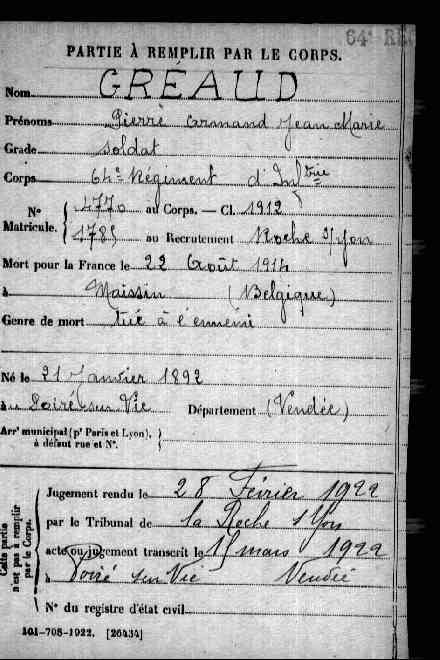 64e REG
PARTIE À REMPLIR PAR LE CORPS.
Nom GRÉAUD
Prénoms Pierre Armand Jean Marie
Grade Soldat
Corps 64e Régiment d'Inftrie
No Matricule. 4770 au Corps. — Cl. 1912
1785 au Recrutement Roche s/yon
Mort pour la France le 22 Août 1914
à Maissin (Belgique)
Genre de mort tué à l'ennemi
Né le 21 Janvier 1892
à Poiré sur Vie Département (Vendée)
Arrt municipal (pr Paris et Lyon),
à défaut rue et No.
Cette partie n'est pas à remplir par le Corps.
Jugement rendu le 28 Février 1922
par le Tribunal de la Roche s/Yon
acte ou jugement transcrit le 15 mars 1922
à Poiré sur Vie Vendée
No du registre d'état civil
101-708-1922. [26434]